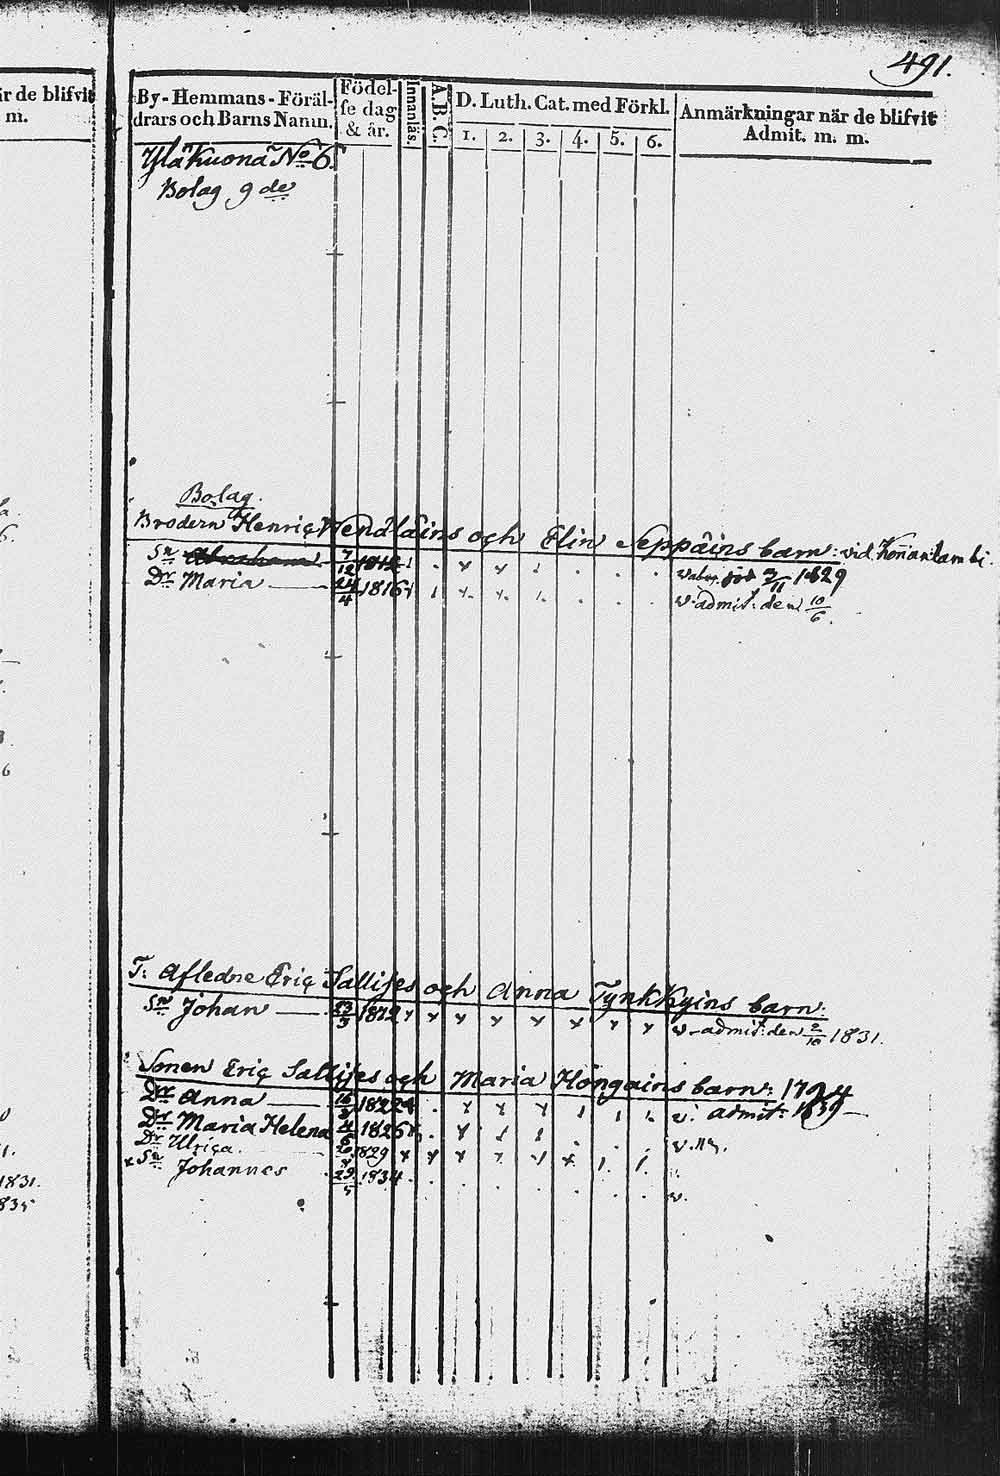 491.
är de blifvit
m.
By-Hemmans-Föräl-
drars och Barns Namn.
Födel-
se dag
& år.
Innanläs.
A.B.C.
D. Luth. Cat. med Förkl.
1. 2. 3. 4. 5. 6.
Anmärkningar när de blifvit
Admit. m. m.
Ylä Kuona No 6.
Bolag 9 de
Bolag.
Brodern Henric Wendläins och Elin Seppäins barn: vid Konanlambi.
Sn Abraham 7/12 1812 1829
Dr Maria 24/4 1816 v. admit: den 10/6.
T: Afledne Eric Sallises och Anna Tynkkyins barn:
Sn Johan 1812 v. admit: den 2/10 1831.
Sonen Eric Sallises och Maria Höngains barn: 1794
Dr Anna 1822 v. admit: 1839
Dr Maria Helena 4/6 1825 v.
Dr Ulrica 1829
Sn Johannes 29/5 1834 v.
1831.
1835